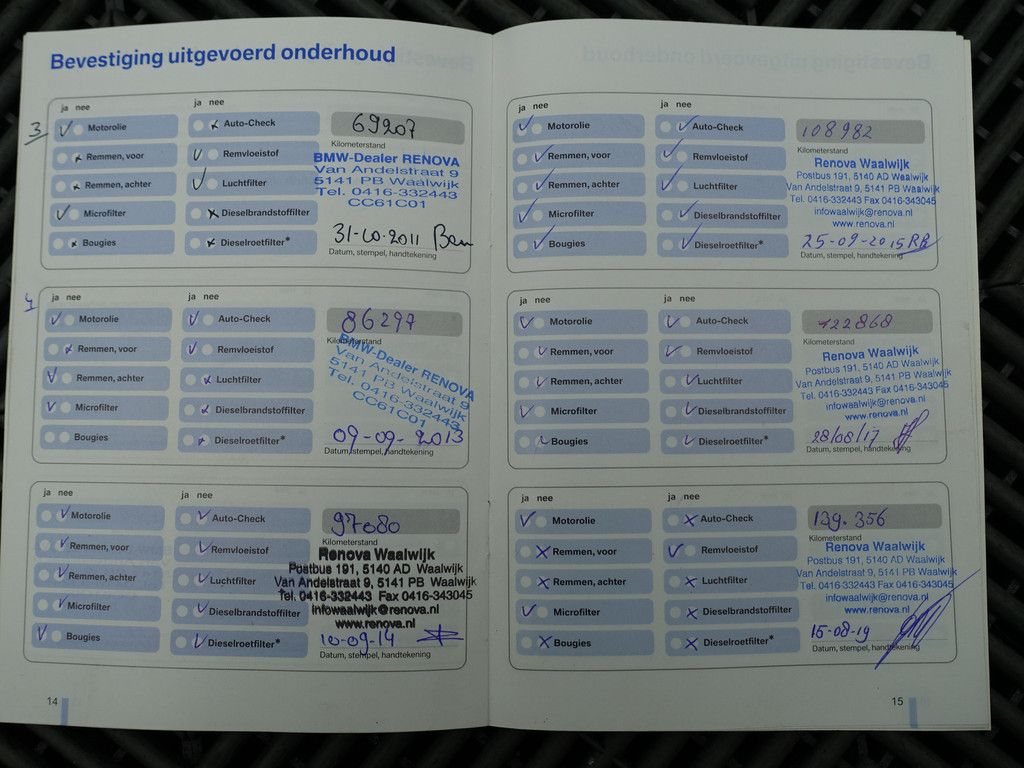 Bevestiging uitgevoerd onderhoud
3
ja nee
ja nee
Motorolie
Auto-Check
69207
Kilometerstand
Remmen, voor
Remvloeistof
BMW-Dealer RENOVA
Van Andelstraat 9
5141 PB Waalwijk
Tel. 0416-332443
CC61C01
Remmen, achter
Luchtfilter
Microfilter
Dieselbrandstoffilter
Bougies
Dieselroetfilter*
31-10-2011
Datum, stempel, handtekening
4
ja nee
ja nee
Motorolie
Auto-Check
86297
Kilometerstand
Remmen, voor
Remvloeistof
BMW-Dealer RENOVA
Van Andelstraat 9
5141 PB Waalwijk
Tel. 0416-332443
CC61C01
Remmen, achter
Luchtfilter
Microfilter
Dieselbrandstoffilter
Bougies
Dieselroetfilter*
09-09-2013
Datum, stempel, handtekening
ja nee
ja nee
Motorolie
Auto-Check
97080
Remmen, voor
Remvloeistof
Renova Waalwijk
Postbus 191, 5140 AD Waalwijk
Van Andelstraat 9, 5141 PB Waalwijk
Tel. 0416-332443 Fax 0416-343045
infowaalwijk@renova.nl
www.renova.nl
Remmen, achter
Luchtfilter
Microfilter
Dieselbrandstoffilter
Bougies
Dieselroetfilter*
10-09-14
Datum, stempel, handtekening
14
ja nee
ja nee
Motorolie
Auto-Check
108982
Kilometerstand
Remmen, voor
Remvloeistof
Renova Waalwijk
Postbus 191, 5140 AD Waalwijk
Van Andelstraat 9, 5141 PB Waalwijk
Tel. 0416-332443 Fax 0416-343045
infowaalwijk@renova.nl
www.renova.nl
Remmen, achter
Luchtfilter
Microfilter
Dieselbrandstoffilter
Bougies
Dieselroetfilter*
25-09-2015 RB
Datum, stempel, handtekening
ja nee
ja nee
Motorolie
Auto-Check
122868
Kilometerstand
Remmen, voor
Remvloeistof
Renova Waalwijk
Postbus 191, 5140 AD Waalwijk
Van Andelstraat 9, 5141 PB Waalwijk
Tel. 0416-332443 Fax 0416-343045
infowaalwijk@renova.nl
www.renova.nl
Remmen, achter
Luchtfilter
Microfilter
Dieselbrandstoffilter
Bougies
Dieselroetfilter*
28/08/17
Datum, stempel, handtekening
ja nee
ja nee
Motorolie
Auto-Check
139.356
Kilometerstand
Remmen, voor
Remvloeistof
Renova Waalwijk
Postbus 191, 5140 AD Waalwijk
Van Andelstraat 9, 5141 PB Waalwijk
Tel. 0416-332443 Fax 0416-343045
infowaalwijk@renova.nl
www.renova.nl
Remmen, achter
Luchtfilter
Microfilter
Dieselbrandstoffilter
Bougies
Dieselroetfilter*
15-08-19
Datum, stempel, handtekening
15